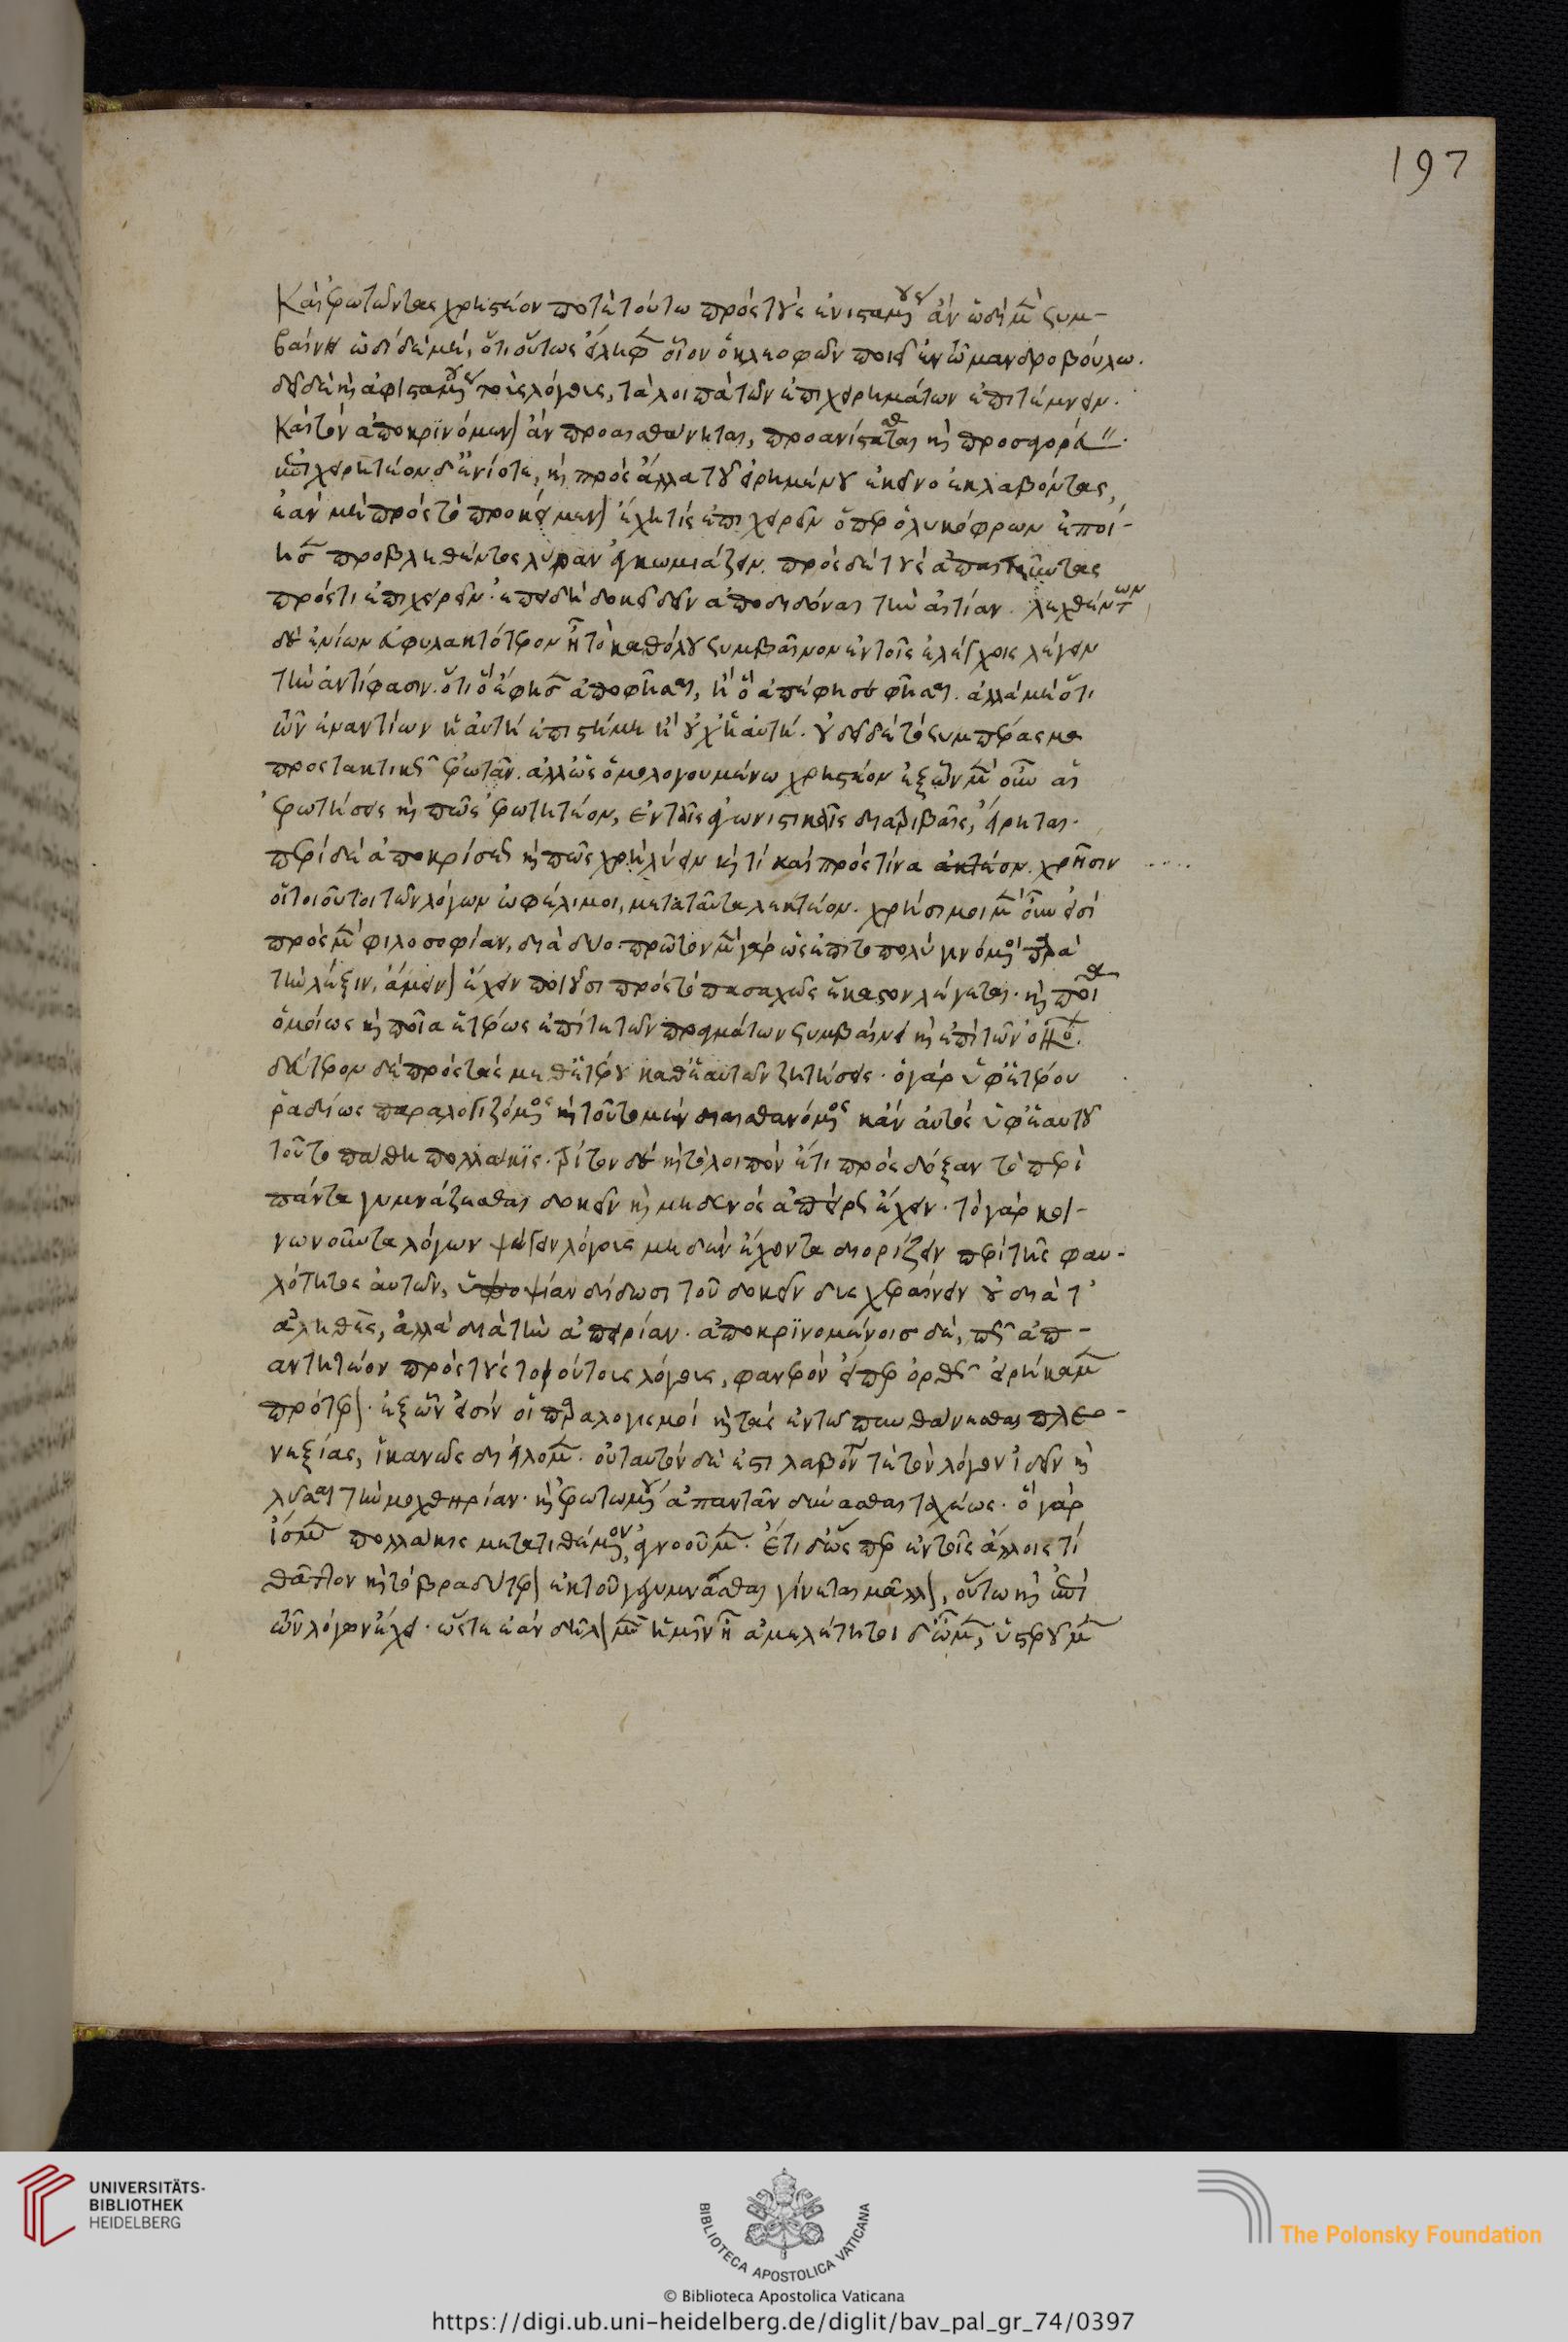 197
Καὶ ἐρωτῶντας χρηστέον ποτὲ τούτω πρὸς τοὺς ἐνισταμένους ἂν ὡδὶ μὲν συμ-
βαίνει ὡδὶ δὲ μὴ, ὅτι οὕτως εἴληφε οἷον ὁ κλεοφῶν ποιεῖ ἐν τῶ μανδροβούλω.
δεῖ δὲ καὶ ἀφισταμένους τοῖς λόγοις, τὰ λοιπὰ τῶν ἐπιχειρημάτων ἐπιτέμνειν.
Καὶ τὸν ἀποκρινόμενον ἂν προαισθάνηται, προανίστασθαι καὶ προαγορ
ἐπιχειρητέον δ' ἐνίοτε, καὶ πρὸς ἄλλα τοῦ εἰρημένου ἐκεῖνο ἐκλαβόντας,
ἐὰν μὴ πρὸς τὸ προκείμενον ἔχη τις ἐπιχειρεῖν ὅπερ ὁ λυκόφρων ἐποί-
ησε προβληθέντος λύραν ἐγκωμιάζειν. πρὸς δὲ τοὺς ἀπαιτοῦντας
πρός τι ἐπιχειρεῖν. ἐπειδὴ δοκεῖ δεῖν ἀποδιδόναι τὴν αἰτίαν. λεχθέντων
δ' ἐνίων ἀφυλακτότερον ἢ τὸ καθόλου συμβαῖνον ἐν τοῖς ἐλέγχοις λέγειν
τὴν ἀντίφασιν. ὅτι ὃ ἔφησε ἀποφῆσαι, ἢ ὃ ἀπέφησε φῆσαι. ἀλλὰ μὴ ὅτι
τῶν ἐναντίων ἡ αὐτὴ ἐπιστήμη ἢ οὐχ ἡ αὐτή. οὐ δεῖ δὲ τὸ συμπέρασμα
προτακτικῶς ἐρωτᾶν. ἀλλ' ὡς ὁμολογουμένω χρηστέον ἐξ ὧν μὲν οὖν αἱ
ἐρωτήσεις καὶ πῶς ἐρωτητέον, ἐν ταῖς ἀγωνιστικαῖς διατριβαῖς, εἴρηται.
περὶ δὲ ἀποκρίσεως καὶ πῶς χρὴ λύειν καὶ τί καὶ πρὸς τίνα ἀκτέον. χρῆσιν
οἱ τοιοῦτοι τῶν λόγων ὠφέλιμοι, μετὰ ταῦτα λεκτέον. χρήσιμοι μὲν οὖν εἰσὶ
πρὸς μὲν φιλοσοφίαν, διὰ δύο. πρῶτον μὲν γὰρ ὡς ἐπὶ τὸ πολὺ γινόμενοι παρὰ
τὴν λέξιν, ἄμεινον ἔχειν ποιοῦσι πρὸς τὸ ποσαχῶς ἕκαστον λέγεται. καὶ ποῖα
ὁμοίως καὶ ποῖα ἑτέρως ἐπί τε τῶν πραγμάτων συμβαίνει καὶ ἐπὶ τῶν ὀνομάτων.
δεύτερον δὲ πρὸς τὰς μεθ' ἑτέρου καθ' ἑαυτῶν ζητήσεις. ὁ γὰρ ὑφ' ἑτέρου
ῥαδίως παραλογιζόμενος καὶ τοῦτο μὲν διαισθανόμενος κἂν αὐτὸς ὑφ' ἑαυτοῦ
τοῦτο πάθη πολλάκις. τρίτον δὲ καὶ τὸ λοιπὸν ἔτι πρὸς δόξαν τὸ περὶ
πάντα γυμνάζεσθαι δοκεῖν καὶ μηδενὸς ἀπείρως ἔχειν. τὸ γὰρ κοι-
νωνοῦντα λόγων ψέγειν λόγους μηδὲν ἔχοντα διορίζειν περὶ τῆς φαυ-
λότητος αὐτῶν, ὑποψίαν δίδωσι τοῦ δοκεῖν δυσχεραίνειν οὐ διὰ τ'
ἀληθὲς, ἀλλὰ διὰ τὴν ἀπειρίαν. ἀποκρινομένοισ δὲ, πῶς ἀπ-
αντητέον πρὸς τοὺς τοιούτους λόγους, φανερὸν εἴπερ ὀρθῶς εἰρήκαμεν
πρότερον. ἐξ ὧν εἰσὶν οἱ παραλογισμοὶ καὶ τὰς ἐν τῶ πυνθάνεσθαι πλεο-
νεξίας, ἱκανῶς διείλομεν. οὐ ταυτὸν δὲ ἐστὶ λαβόντα τε τὸν λόγον ἰδεῖν καὶ
λῦσαι τὴν μοχθηρίαν. καὶ ἐρωτωμένους ἀπαντᾶν δύνασθαι ταχέως. ὃ γὰρ
ἴσμεν πολλάκις μετατιθέμενον, ἀγνοοῦμεν. Ἔτι δ' ὥσπερ ἐν τοῖς ἄλλοις τὸ
θᾶττον καὶ τὸ βραδύτερον ἐκ τοῦ γυμνάσασθαι γίνεται μᾶλλον, οὕτω καὶ ἐπὶ
τῶν λόγων ἔχει. ὥστε ἐὰν δῆλον μὲν ἡμῖν ἦ ἀμελέτητοι δ' ὦμεν, ὑστεροῦμεν
UNIVERSITÄTS-
BIBLIOTHEK
HEIDELBERG
BIBLIOTECA APOSTOLICA VATICANA
The Polonsky Foundation
© Biblioteca Apostolica Vaticana
https://digi.ub.uni-heidelberg.de/diglit/bav_pal_gr_74/0397